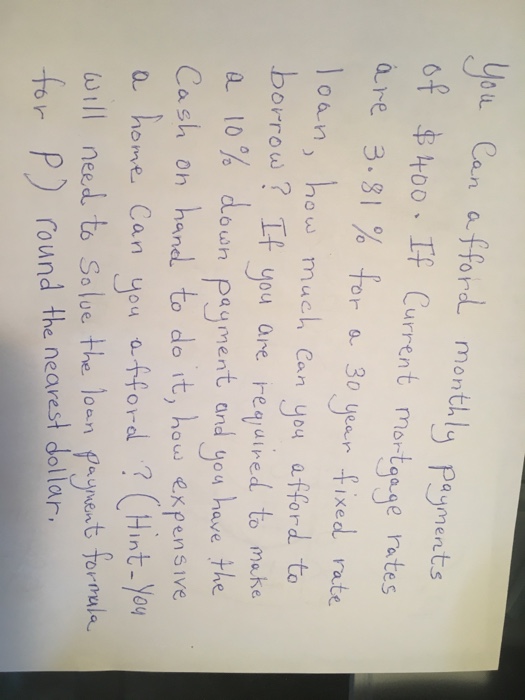 You Can afford monthly payments
of $400. If Current mortgage rates
are 3.81% for a 30 year fixed rate
loan, how much Can you afford to
borrow? If you are required to make
a 10% down payment and you have the
Cash on hand to do it, how expensive
a home Can you afford? (Hint-You
will need to Solve the loan payment formula
for P) round the nearest dollar.